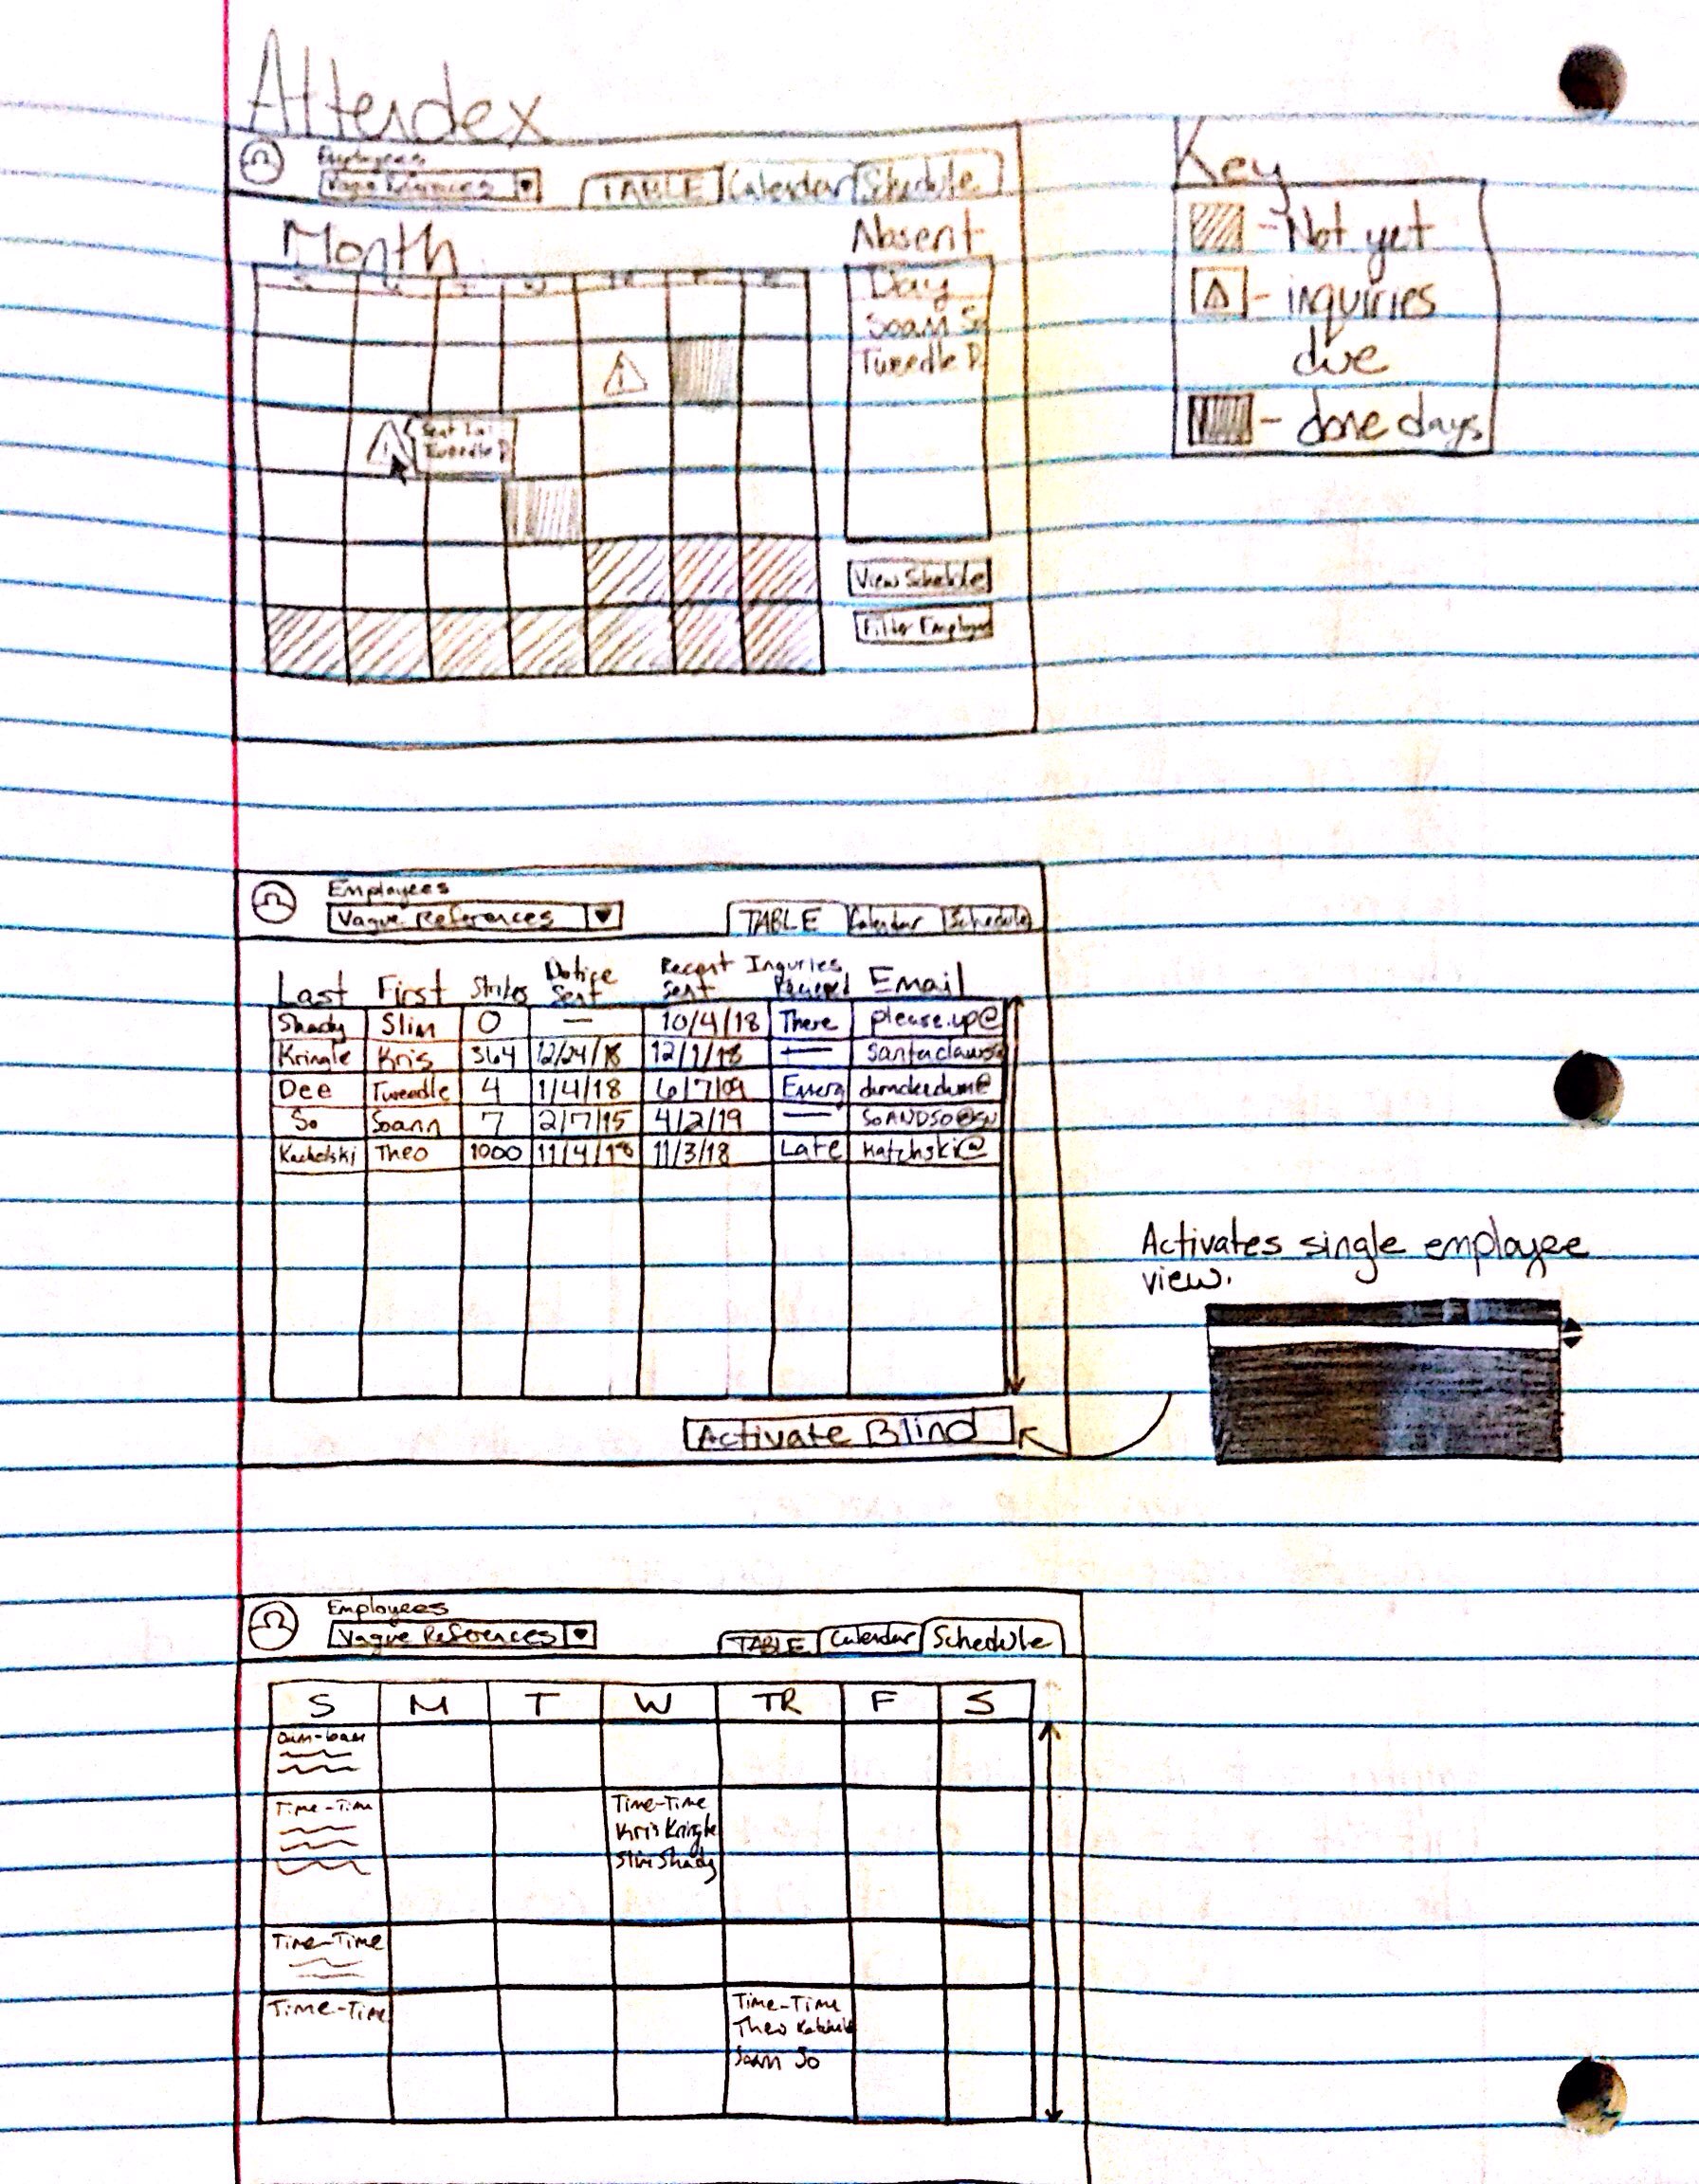 Attendex
Employees
TABLE Calendar Schedule
Month
Absent
Day
Soann So
Tweedle D.
Tweedle D
View Schedule
Filter Employee
Key
- Not yet
- inquiries
due
- done days
Employees
Vague References
TABLE Calendar Schedule
Last First Strikes Notice Sent Recent Inquries Sent Recieved Email
Shady Slim 0 — 10/4/18 There please.up@
Kringle Kris 364 12/24/18 12/1/18 — santaclaus@
Dee Tweedle 4 1/4/18 6/7/09 Emerg dumdeedum@
So Soann 7 2/7/15 4/2/19 — SoANDSO@
Theo 1000 11/4/18 11/3/18 Late katchski@
Activate Blind
Activates single employee
view.
Employees
Vague References
TABLE Calendar Schedule
S M T W TR F S
Time-Time
Time-Time
Kris Kringle
Slim Shady
Time-Time
Time-Time
Time-Time
Theo
Soann So